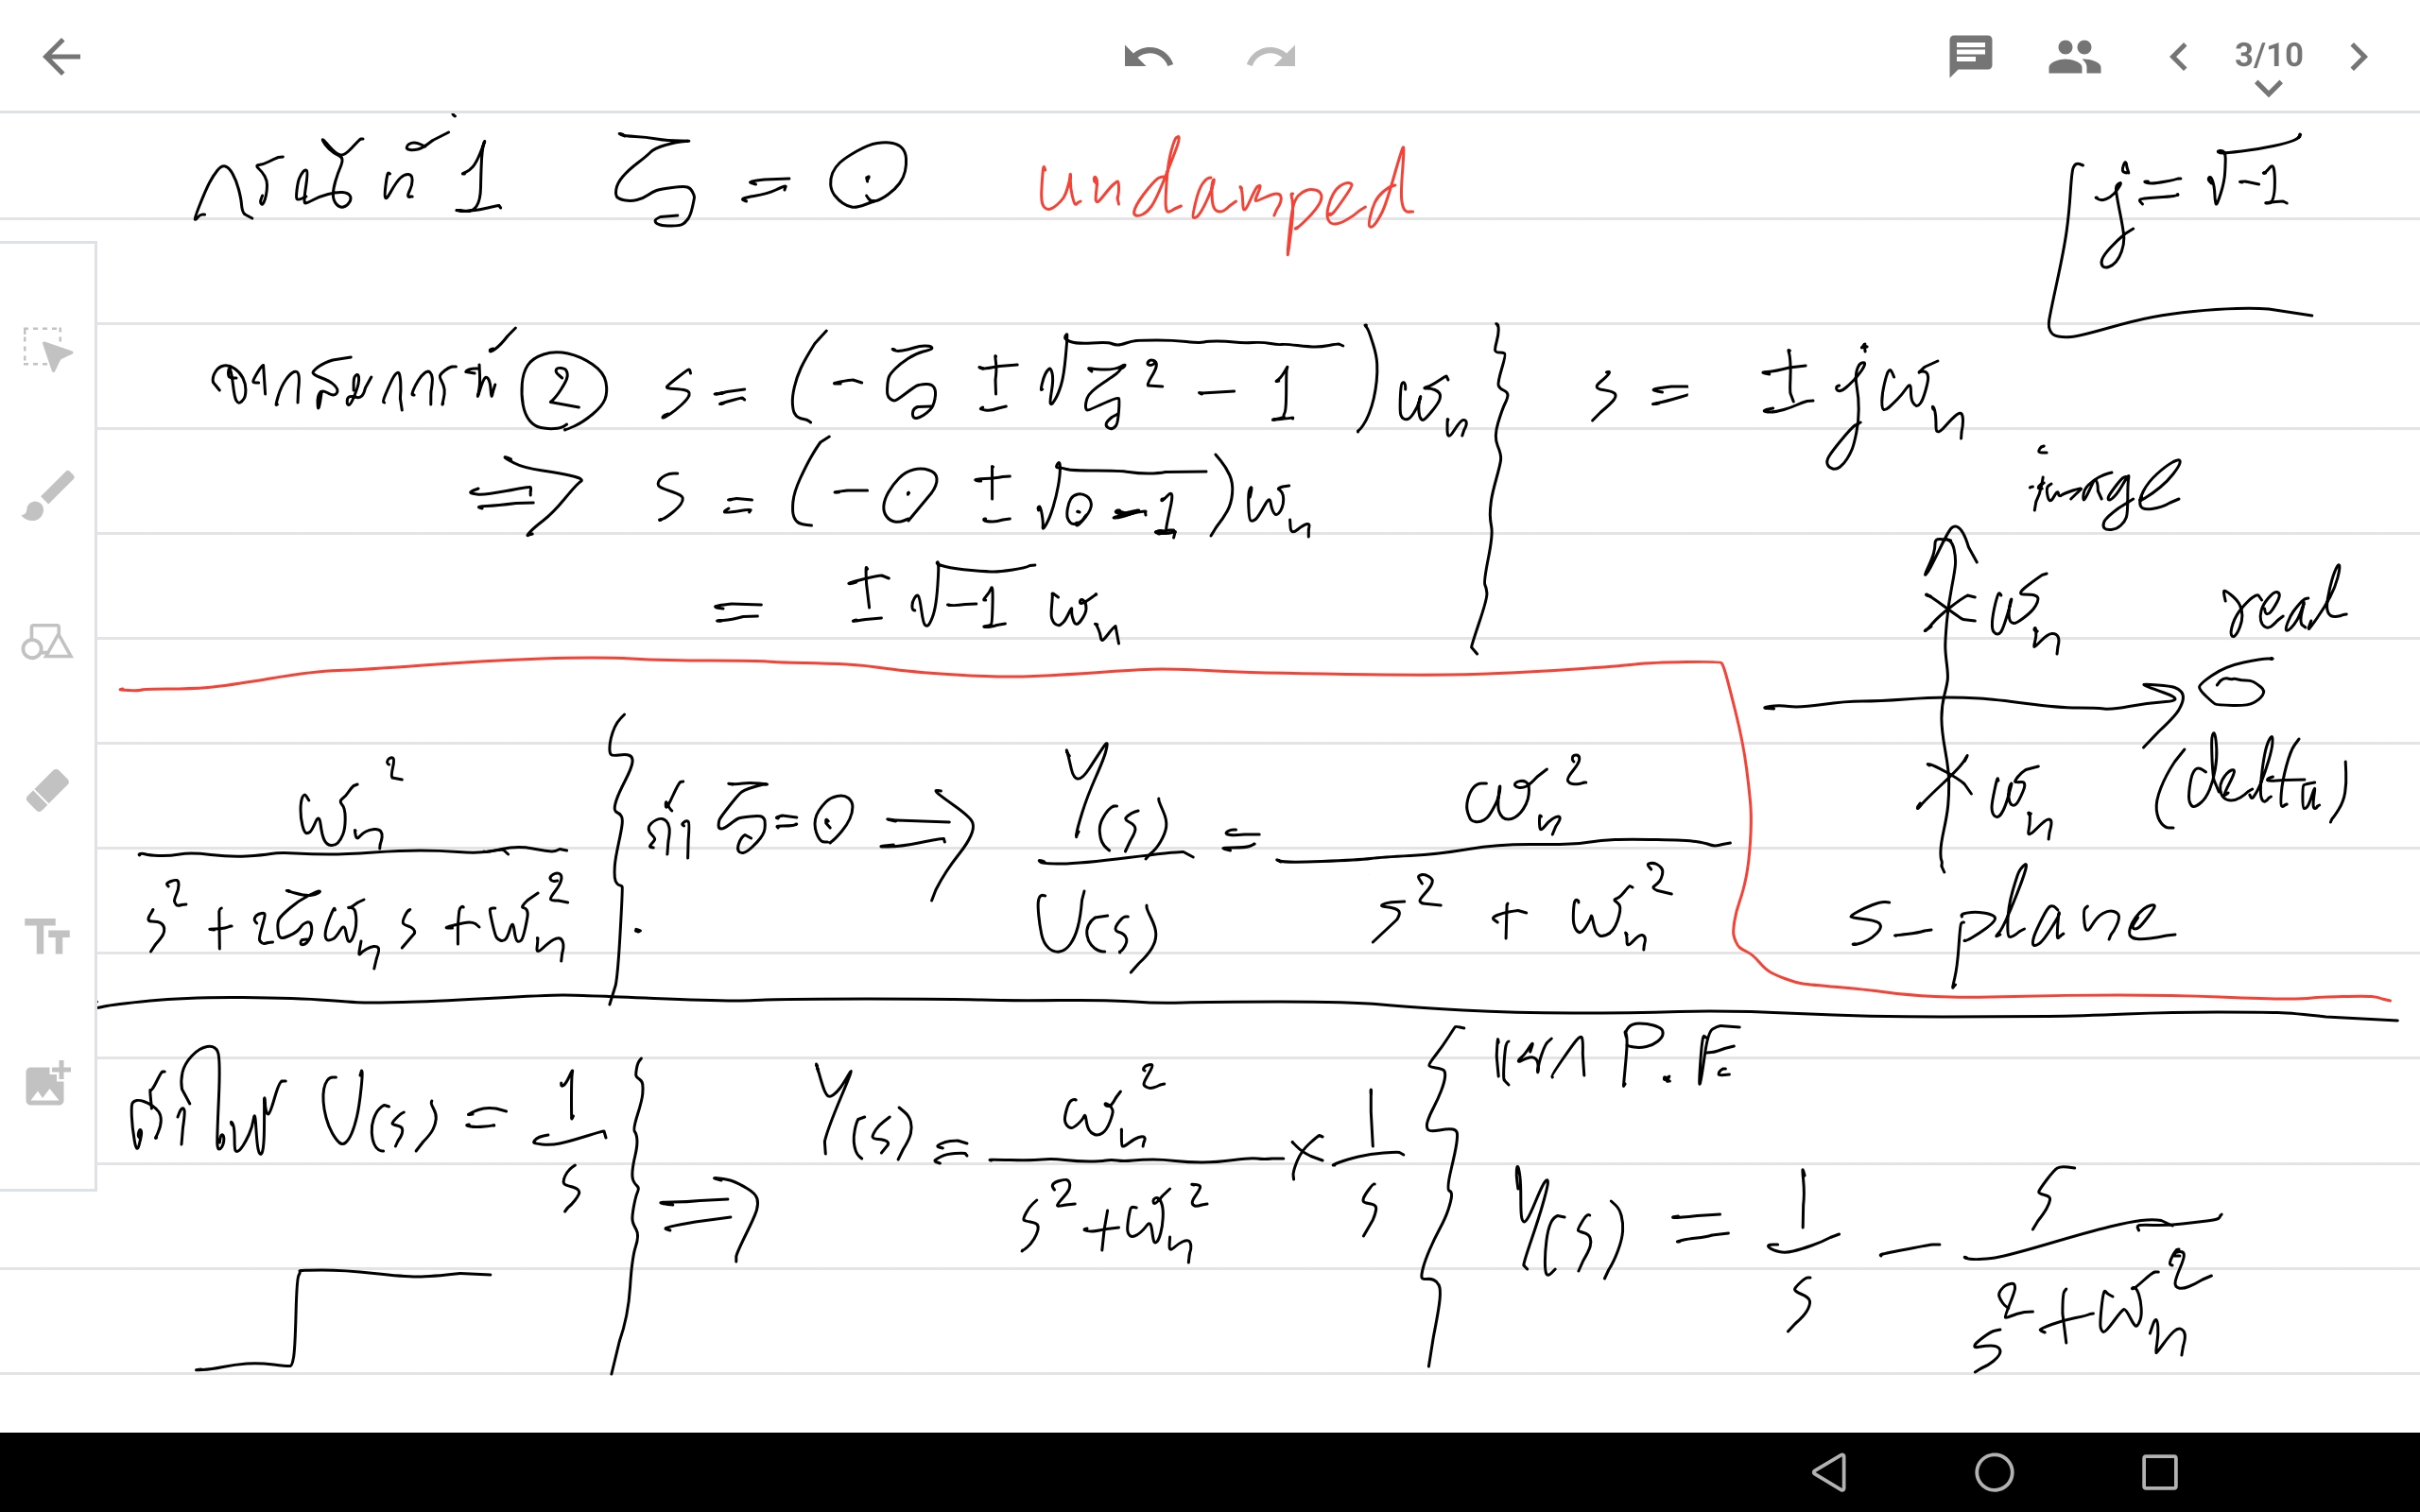 3/10
กรณีที่ 1 ζ = 0 undamped
j = √-1
จากสมการที่ ② s = (-ζ ± √(ζ² - 1)) ωn
s = ± jωn
⇒ s = (-0 ± √(0-1)) ωn
= ± √-1 ωn
image
ωn
real
σ
(delta)
ωn
s-plane
ωn² / (s² + 2ζωn s + ωn²)
ถ้า ζ = 0 ⇒ Y(s)/U(s) = ωn² / (s² + ωn²)
ถ้าให้ U(s) = 1/s
⇒ Y(s) = ωn² / (s² + ωn²) × 1/s
แยก P.F
Y(s) = 1/s - s / (s² + ωn²)